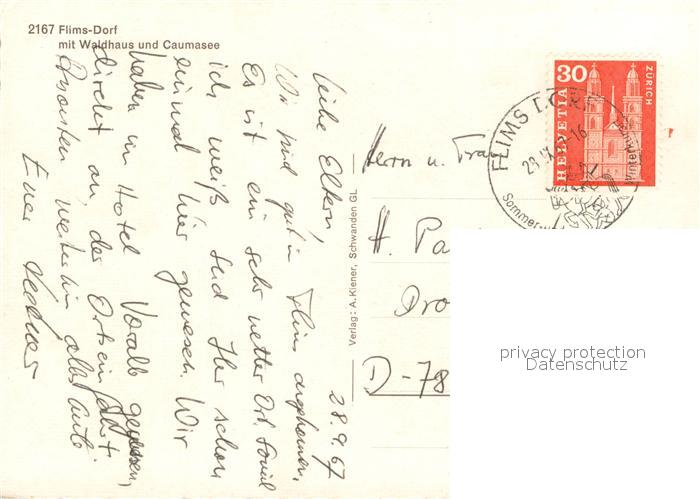 2167 Flims-Dorf
mit Waldhaus und Caumasee
28.9.67
Liebe Eltern,
Wir sind gut in Flims angekommen.
Es ist ein sehr netter Ort. Soviel
ich weiß seid Ihr schon
einmal hier gewesen. Wir
haben im Hotel Vorab gegessen,
direkt an der Ortseinfahrt
Ansonsten weiterhin alles Gute
Euer
Verlag: A. Kiener, Schwanden GL
Herrn u. Frau
H. Pa
Dro
D-78
30
HELVETIA
ZÜRICH
FLIMS DORF
Sommer-
Winter
privacy protection
Datenschutz